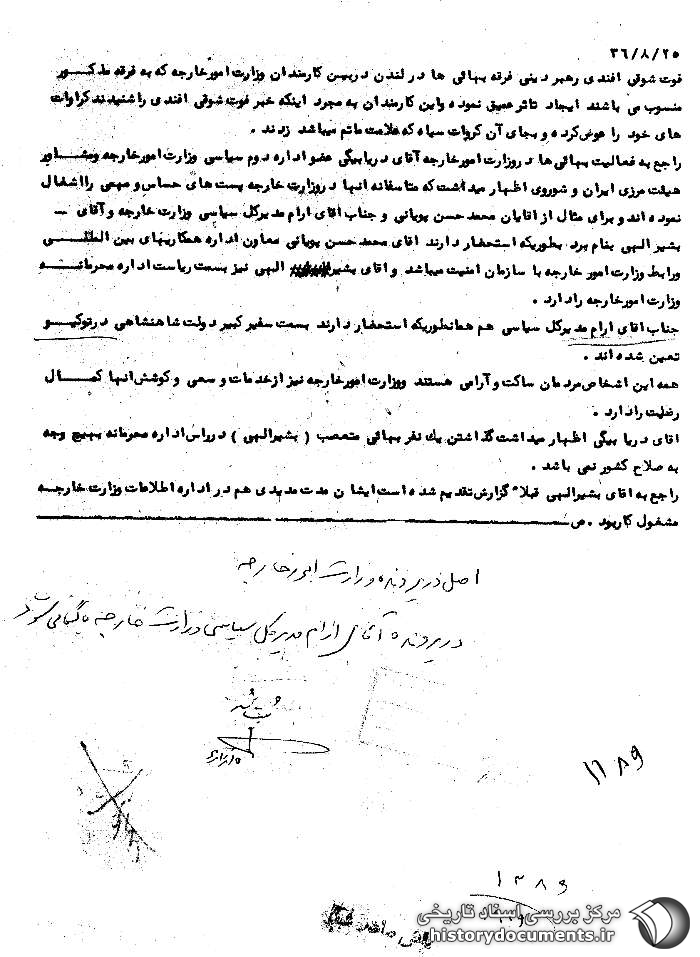 ۳۶/۸/۲۵
فوت شوقی افندی رهبر دینی فرقه بهائی ها در لندن دربین کارمندان وزارت امورخارجه که به فرقه مذکور
منسوب می باشند ایجاد تاثر عمیق نموده واین کارمندان به مجرد اینکه خبر فوت شوقی افندی راشنیدند کراوات
های خود را عوض کرده و بجای آن کروات سیاه که علامت ماتم میباشد زدند .
راجع به فعالیت بهائی ها در وزارت امورخارجه آقای دریابیگی عضو اداره دوم سیاسی وزارت امورخارجه ومشاور
هیئت مرزی ایران و شوروی اظهار میداشت که متاسفانه آنها در وزارت خارجه پست های حساس و مهمی رااشغال
نموده اند و برای مثال از اقایان محمد حسن پویانی و جناب اقای ارام مدیرکل سیاسی وزارت خارجه و آقای
بشیر الهی بنام برد بطوریکه استحضار دارند اقای محمد حسن پویانی معاون اداره همکاریهای بین المللی
ورابط وزارت امور خارجه با سازمان امنیت میباشد و اقای بشیر الهی نیز بسمت ریاست اداره محرمانه
وزارت امورخارجه رادارد .
جناب اقای ارام مدیرکل سیاسی هم همانطوریکه استحضار دارند بسمت سفیر کبیر دولت شاهنشاهی درتوکیو
تعین شده اند .
همه این اشخاص مردمان ساکت و آرامی هستند ووزارت امورخارجه نیز از خدمات و سعی و کوشش انها کمال
رضایت رادارد .
اقای دریا بیگی اظهار میداشت گذاشتن یك نفر بهائی متعصب ( بشیرالهی ) درراس اداره محرمانه بهیچ وجه
به صلاح کشور نمی باشد .
راجع به اقای بشیرالهی قبلا" گزارش تقدیم شده است ایشان مدت مدیدی هم در اداره اطلاعات وزارت خارجه
مشغول کاربود . ص
اصل در پرونده وزارت امور خارجه
در پرونده آقای ارام مدیر کل سیاسی وزارت خارجه بایگانی شود
۱۱۸۹
۱۳۸۹
مرکز بررسی اسناد تاریخی
historydocuments.ir